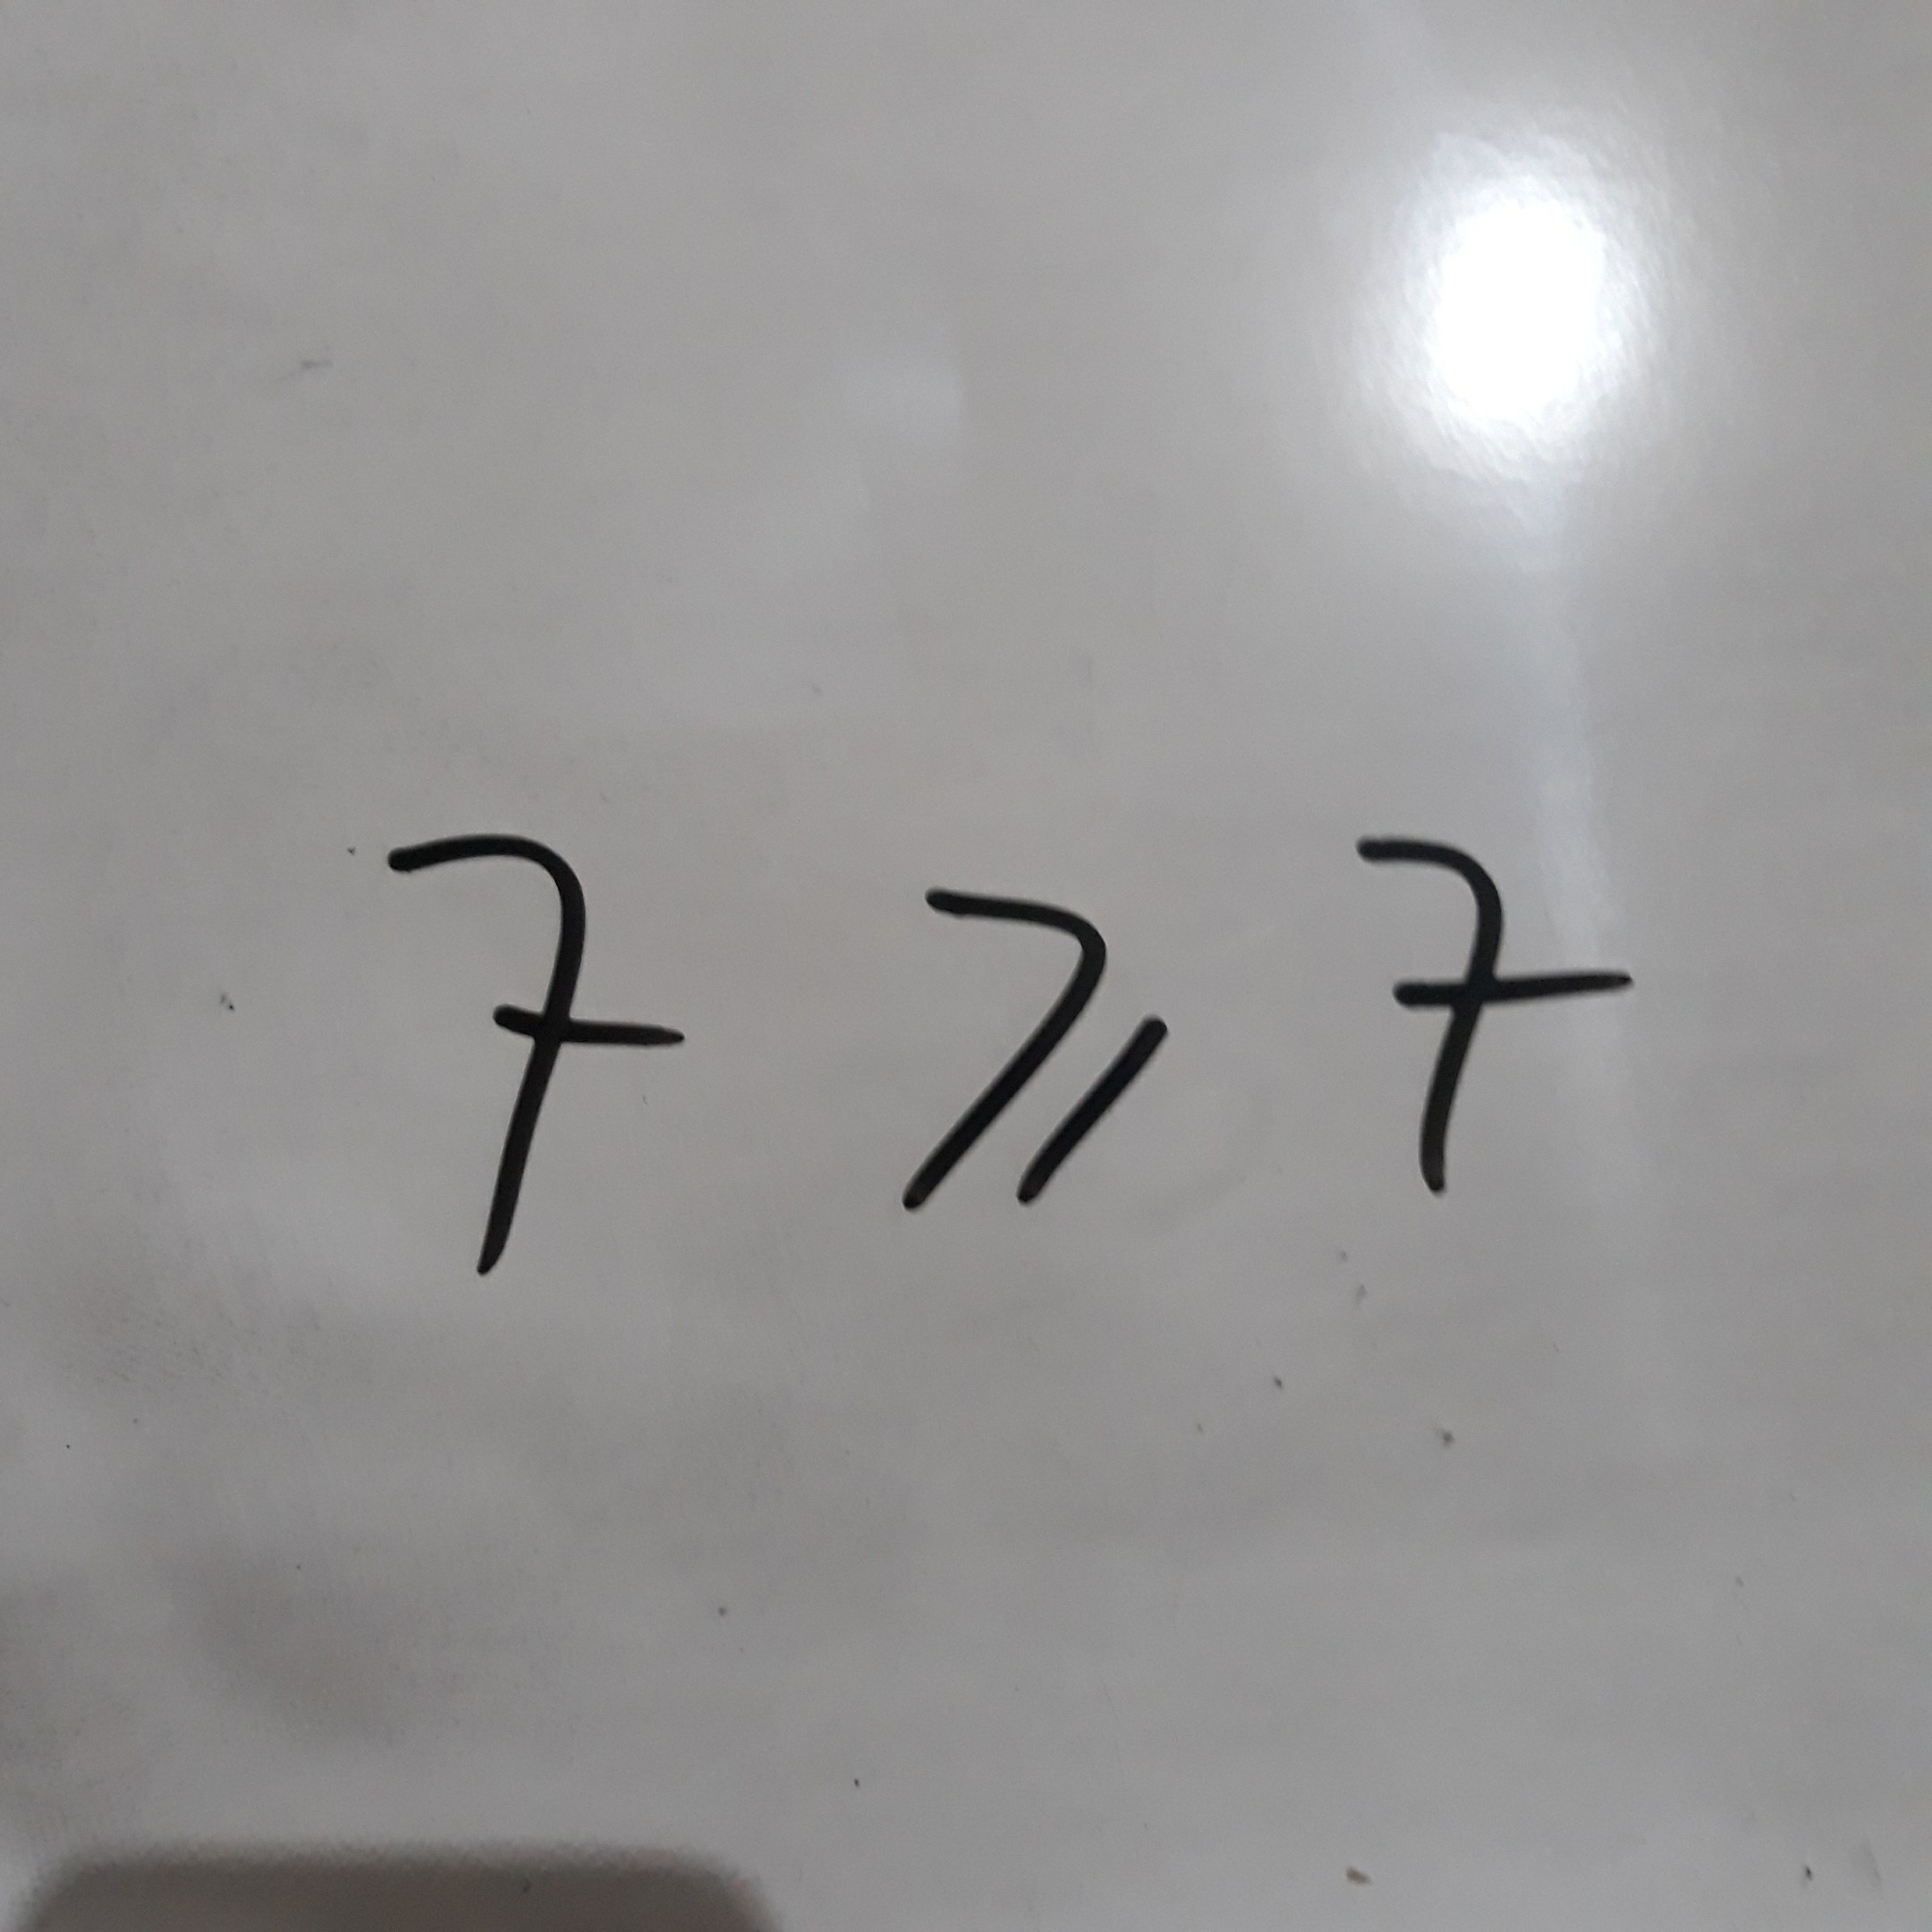 7 ⩾ 7